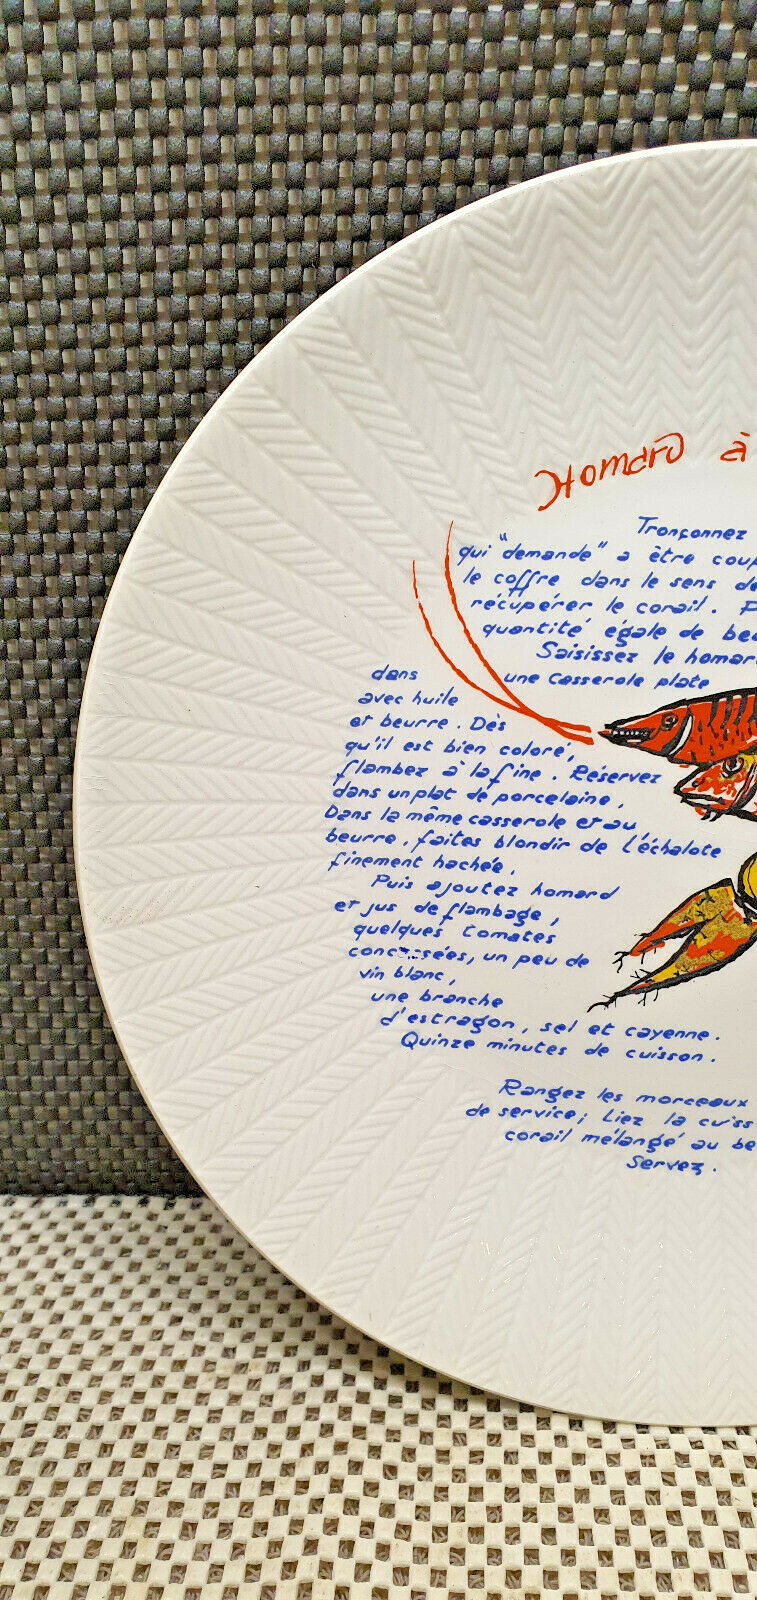 Homard à
Tronçonnez
qui "demande" a être coup
le coffre dans le sens de
récupérer le corail. P
quantité égale de beu
Saisissez le homar
dans une casserole plate
avec huile
et beurre. Dès
qu'il est bien coloré,
flambez à la fine. Réservez
dans un plat de porcelaine.
Dans la même casserole et au
beurre, faites blondir de l'échalote
finement hachée.
Puis ajoutez homard
et jus de flambage,
quelques tomates
concassées, un peu de
vin blanc,
une branche
d'estragon, sel et cayenne.
Quinze minutes de cuisson.
Rangez les morceaux
de service; Liez la cuiss
corail mélangé au be
Servez.